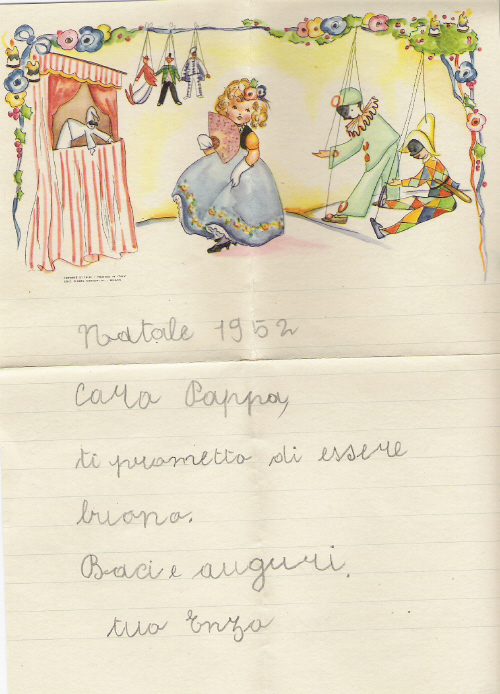 Natale 1952
Caro Pappa,
ti prometto di essere
buono.
Baci e auguri.
tuo Enzo